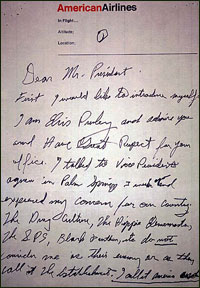 AmericanAirlines
In Flight...
Altitude:
Location:
Dear Mr. President
First I would like to introduce myself
I am Elvis Presley and admire you
and Have Great Respect for your
office. I talked to Vice President
agnew in Palm Springs 3 weeks and
expressed my concern for our country.
The Drug Culture, The Hippie Elements,
The SDS, Black Panthers, etc do not
consider me as their enemy or as they
call it the establishment. I call it america and